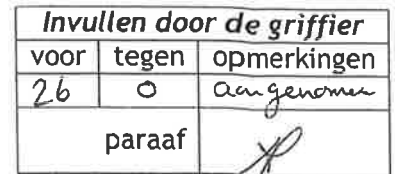 Invullen door de griffier
voor tegen opmerkingen
26 0 aangenomen
paraaf